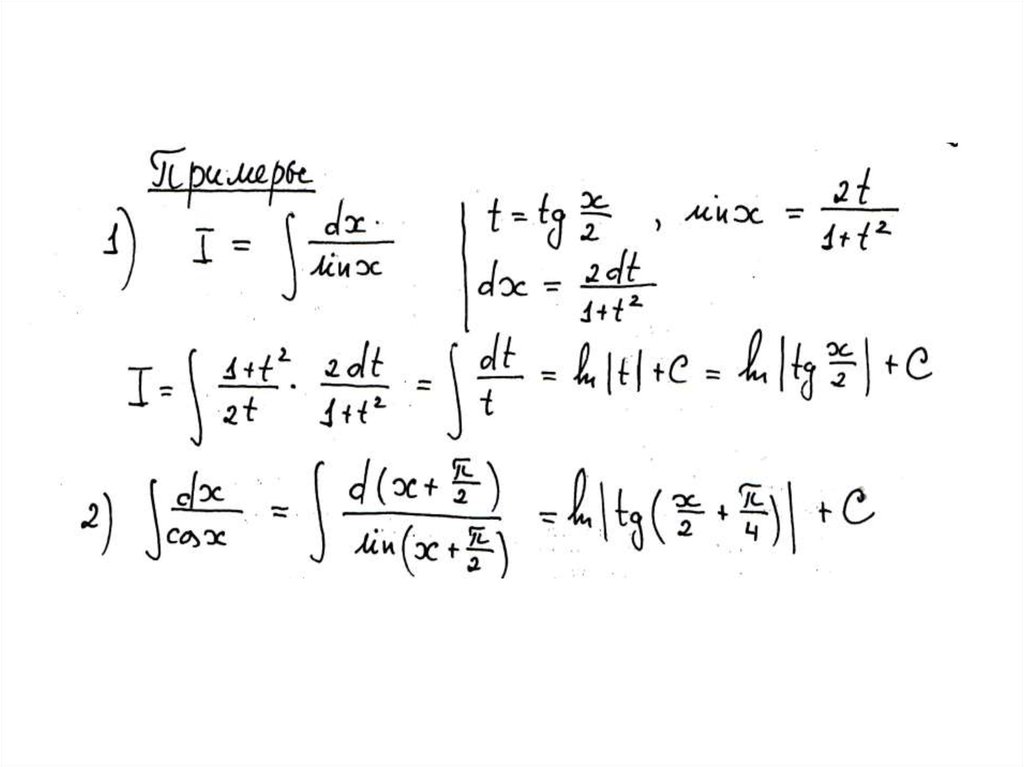 Примеры
1) I = ∫ dx/sinx | t = tg x/2 , sinx = 2t/(1+t²)
dx = 2dt/(1+t²)
I = ∫ (1+t²)/2t · 2dt/(1+t²) = ∫ dt/t = ln|t| + C = ln|tg x/2| + C
2) ∫ dx/cosx = ∫ d(x + π/2)/sin(x + π/2) = ln|tg(x/2 + π/4)| + C